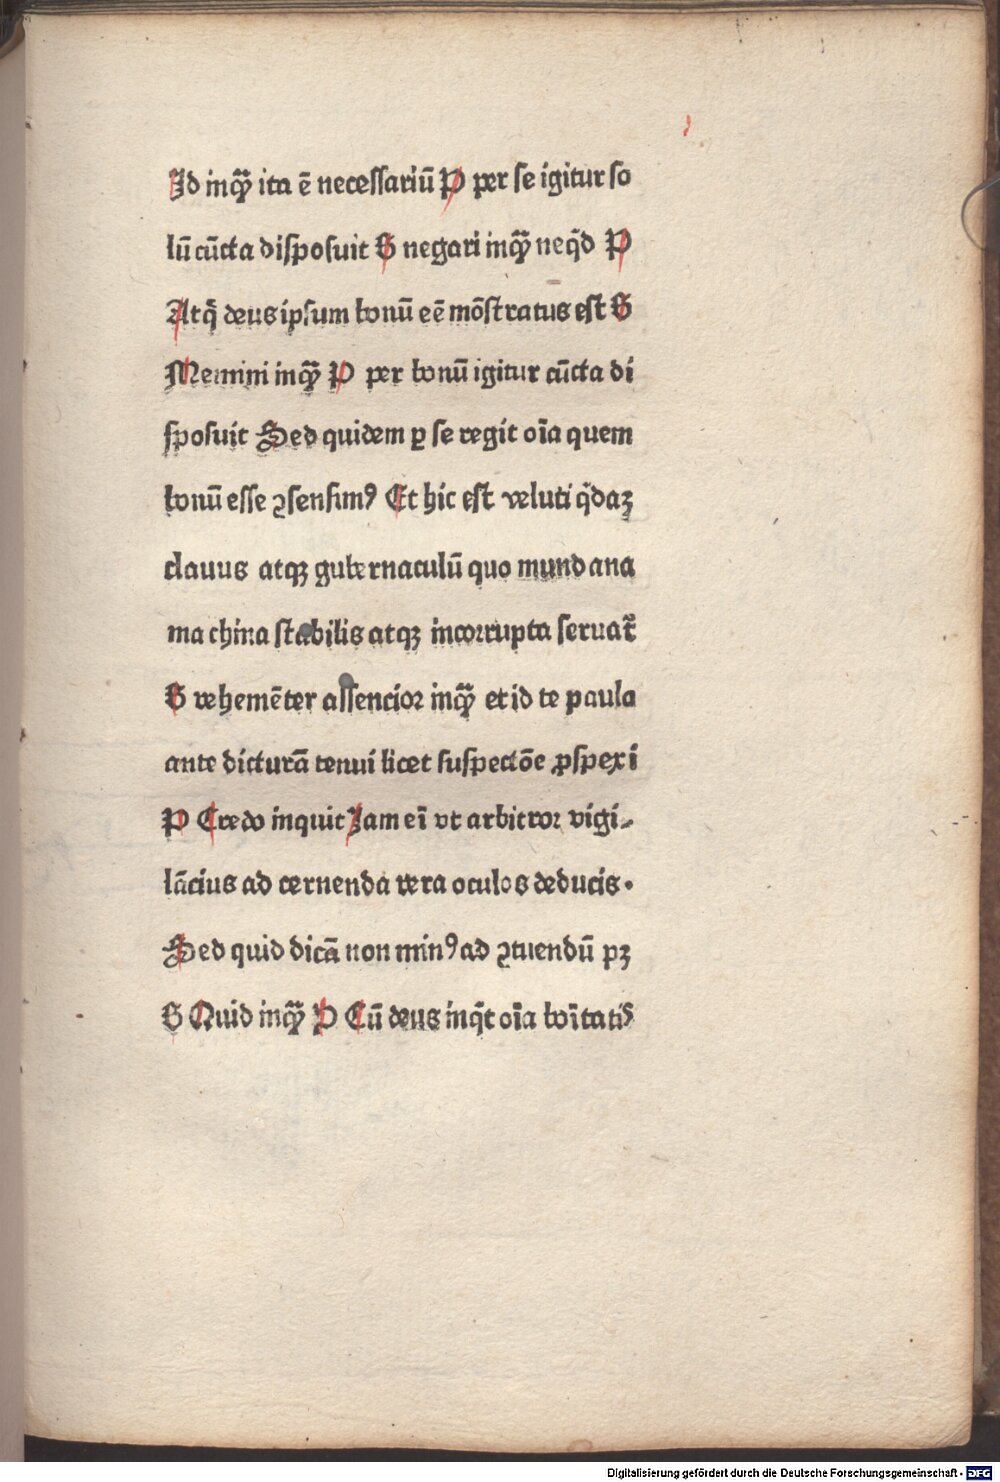 Id inqꝫ̃ ita ẽ necessariũ P per se igitur so
lũ cũcta disposuit B negari inqꝫ̃ neq̃d P
Atq̃ deus ipsum bonũ eẽ mõstratus est B
Memini inqꝫ̃ P per bonũ igitur cũcta di
sposuit Sed quidem ꝑ se regit oĩa quem
bonũ esse ꝯsensimꝰ Et hic est veluti q̃daꝫ
clauus atqꝫ gubernaculũ quo mundana
machina stabilis atqꝫ incorrupta seruat᷑
B vehemẽter assencior inqꝫ̃ et id te paula
ante dicturã tenui licet suspectõe ꝓspexi
P Credo inquit Iam eĩ vt arbitror vigi⸗
lãcius ad cernenda vera oculos deducis.
Sed quid dicã non minꝰ ad ꝯtuendũ pꝫ
B Quid inqꝫ̃ P Cũ deus inq̃t oĩa boĩtatꝭ
Digitalisierung gefördert durch die Deutsche Forschungsgemeinschaft - DFG